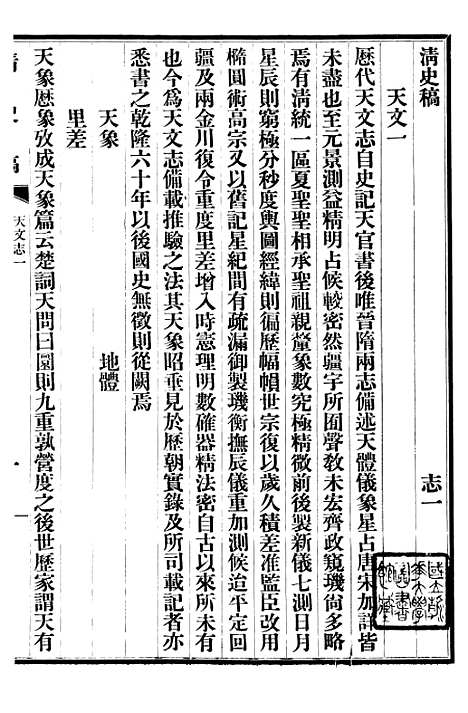 淸史稿
志一
天文一
歷代天文志自史記天官書後唯晉隋兩志備述天體儀象星占唐宋加詳皆
未盡也至元景測益精明占候較密然疆宇所囿聲敎未宏齊政窺璣尙多略
焉有淸統一區夏聖聖相承聖祖親釐象數究極精微前後製新儀七測日月
星辰則窮極分秒度輿圖經緯則徧歷幅幀世宗復以歲久積差准監臣改用
橢圓術高宗又以舊記星紀間有疏漏御製璣衡撫辰儀重加測候迨平定回
疆及兩金川復令重度里差增入時憲理明數確器精法密自古以來所未有
也今爲天文志備載推驗之法其天象昭垂見於歷朝實錄及所司載記者亦
悉書之乾隆六十年以後國史無徵則從闕焉
天象 地體
里差
天象歷象攷成天象篇云楚詞天問曰圜則九重孰營度之後世歷家謂天有
淸史稿
天文志一
一